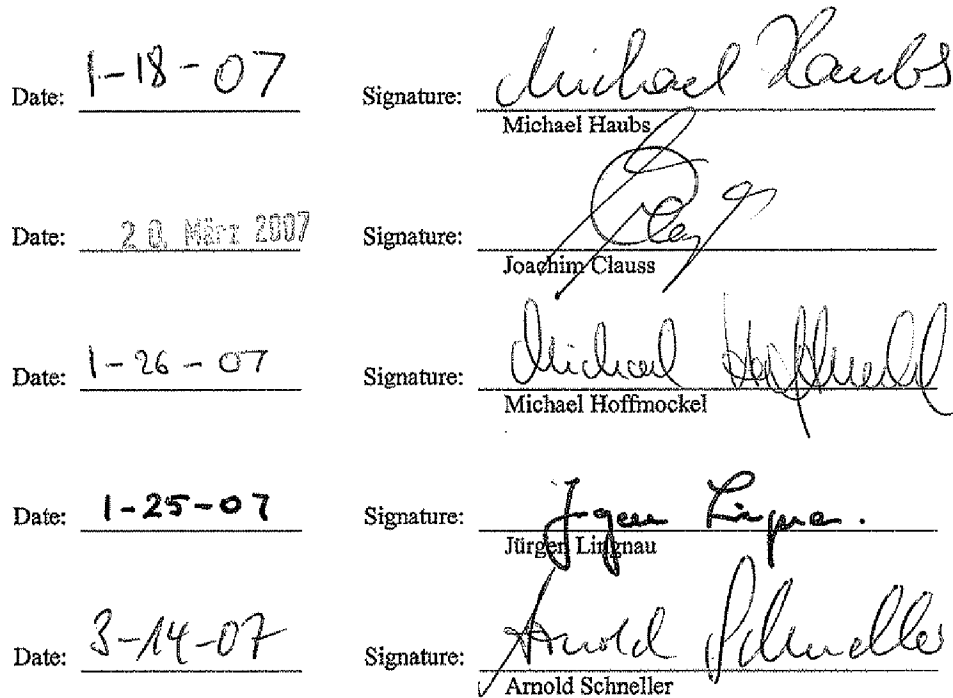 Date: 1-18-07 Signature: Michael Haubs
Michael Haubs
Date: 20. März 2007 Signature:
Joachim Clauss
Date: 1-26-07 Signature: Michael Hoffmockel
Michael Hoffmockel
Date: 1-25-07 Signature: Jürgen Lingnau.
Jürgen Lingnau
Date: 3-14-07 Signature: Arnold Schneller
Arnold Schneller